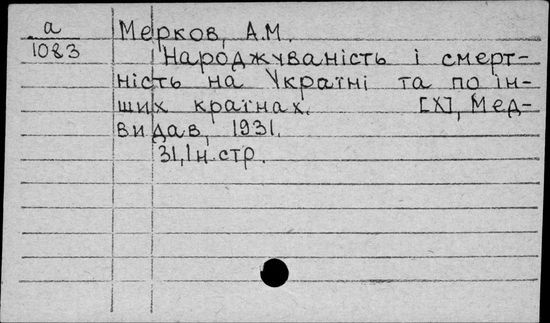 а
1083
Мерков, А.М.
Народжуваність і смерт-
ність на Україні та по ін-
ших країнах. [Х], Мед-
видав, 1931.
31,1н.стр.